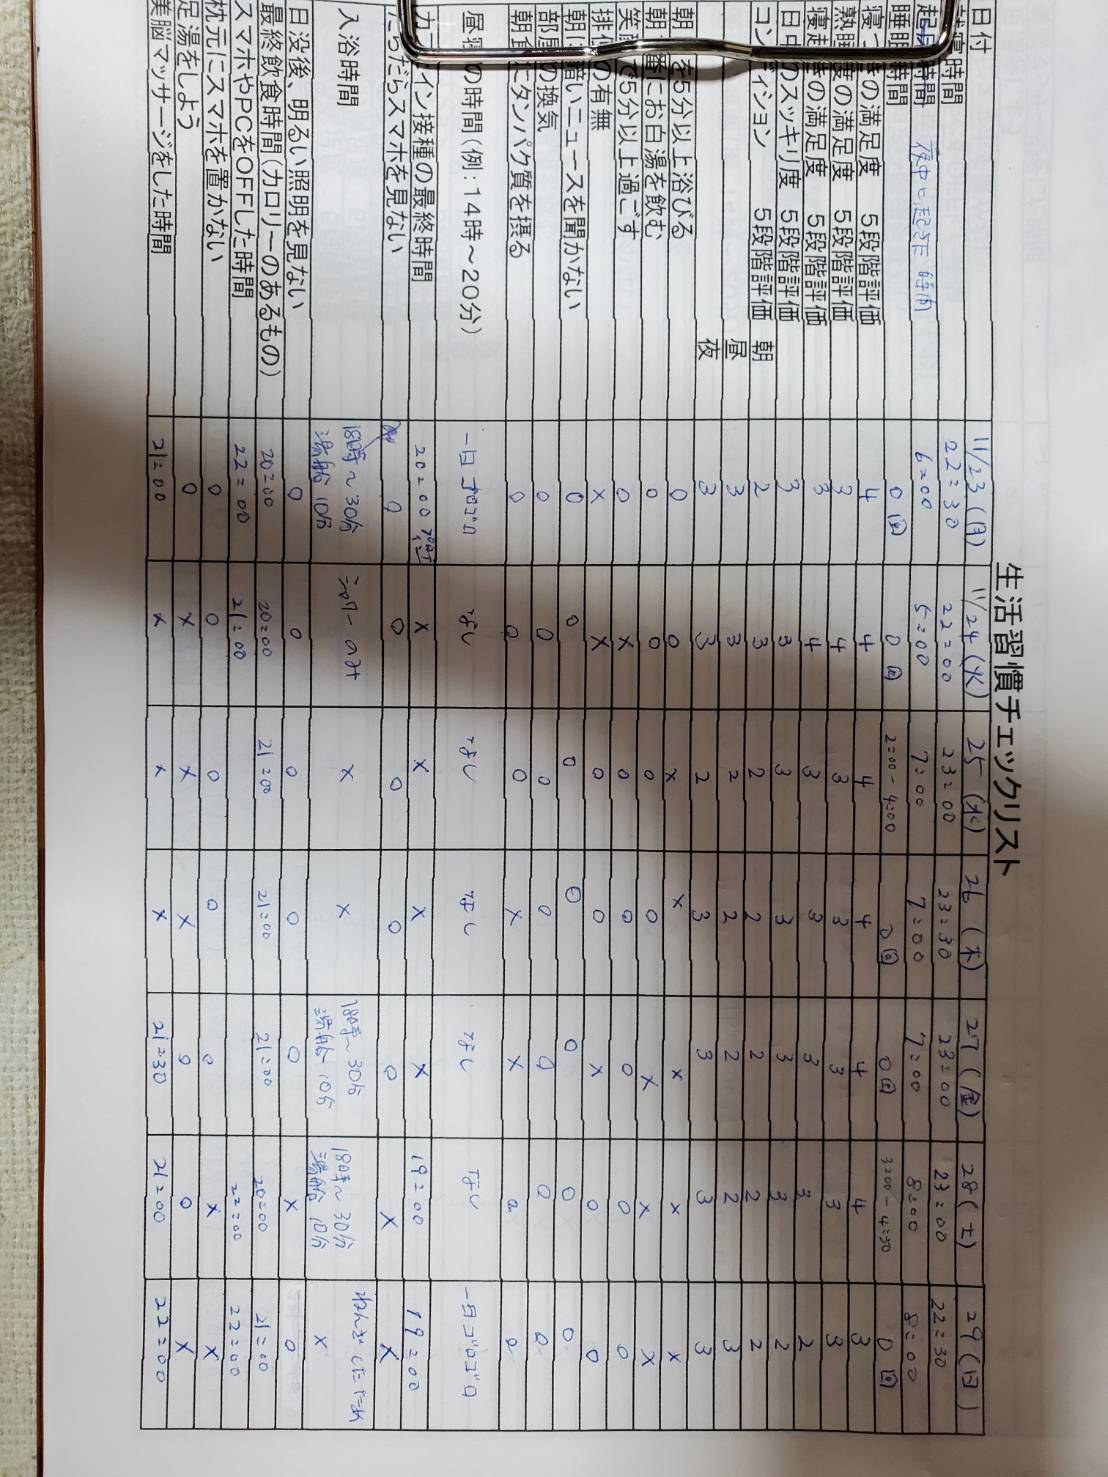 生活習慣チェックリスト
日付 11/23(月) 11/24(火) 25(水) 26(木) 27(金) 28(土) 29(日)
時間 22:30 22:00 23:00 23:30 23:00 23:00 22:30
時間 6:00 5:00 7:00 7:00 7:00 8:00 8:00
睡眠時間 夜中に起きた時間 0回 0回 2:00-4:00 0回 0回 3:00-4:30 0回
の満足度 5段階評価 4 4 4 4 4 4 3
熟睡度の満足度 5段階評価 3 4 3 3 3 3 3
寝起きの満足度 5段階評価 3 4 3 3 3 3 2
日中のスッキリ度 5段階評価 3 3 3 3 3 3 2
コンディション 5段階評価 朝 2 3 2 2 2 2 2
昼 3 3 2 2 2 2 3
夜 3 3 2 3 3 3 3
を5分以上浴びる ○ ○ × × × × ×
にお白湯を飲む ○ ○ ○ ○ × × ×
で5分以上過ごす ○ × ○ ○ ○ ○ ○
の有無 × × ○ ○ × ○ ○
暗いニュースを聞かない ○ ○ ○ ○ ○ ○ ○
部屋の換気 ○ ○ ○ ○ ○ ○ ○
朝食にタンパク質を摂る ○ ○ ○ × × ○ ○
の時間(例:14時～20分) 一日ゴロゴロ なし なし なし なし なし 一日ゴロゴロ
イン接種の最終時間 20:00 × × × × 19:00 19:00
だらスマホを見ない ○ ○ ○ ○ ○ × ×
入浴時間 18時～30分 湯船10分 シャワーのみ × × 18時～30分 湯船10分 18時～30分 湯船10分 ねんざしたため ×
日没後、明るい照明を見ない ○ ○ ○ ○ ○ × ○
最終飲食時間(カロリーのあるもの) 20:00 20:00 21:00 21:00 21:00 20:00 21:00
スマホやPCをOFFした時間 22:00 21:00 22:00 22:00
枕元にスマホを置かない ○ ○ ○ ○ ○ × ×
足湯をしよう ○ × × × ○ ○ ×
美脳マッサージをした時間 21:00 × × × 21:30 21:00 22:00